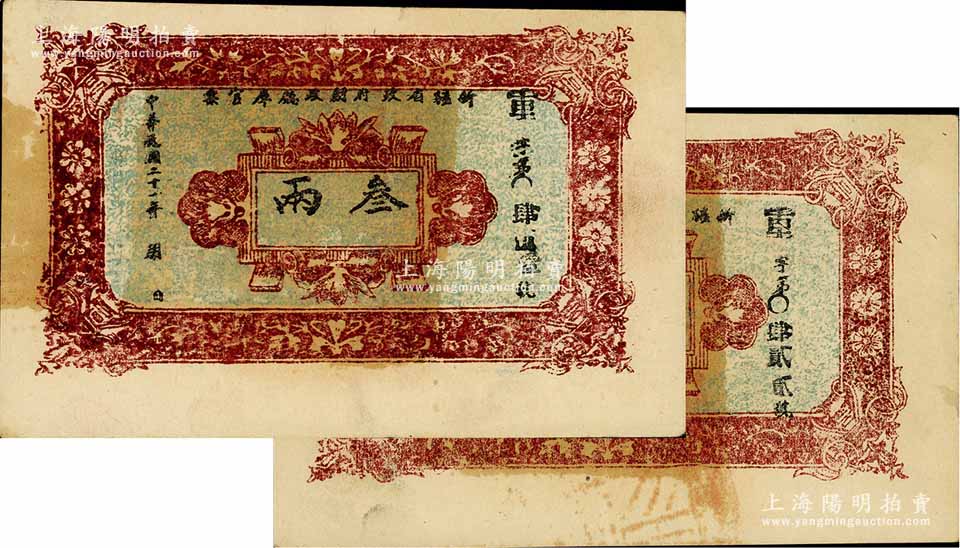 上海陽明拍賣
www.yangmingauction.com
新疆省政府財政廳庫官票
叁兩
中華民國二十一年 月 日
字第〇肆
上海陽明拍賣
www.yangmingauction.com
新疆
字第〇肆貳貳號
上海陽明拍賣
www.yangmingauction.com